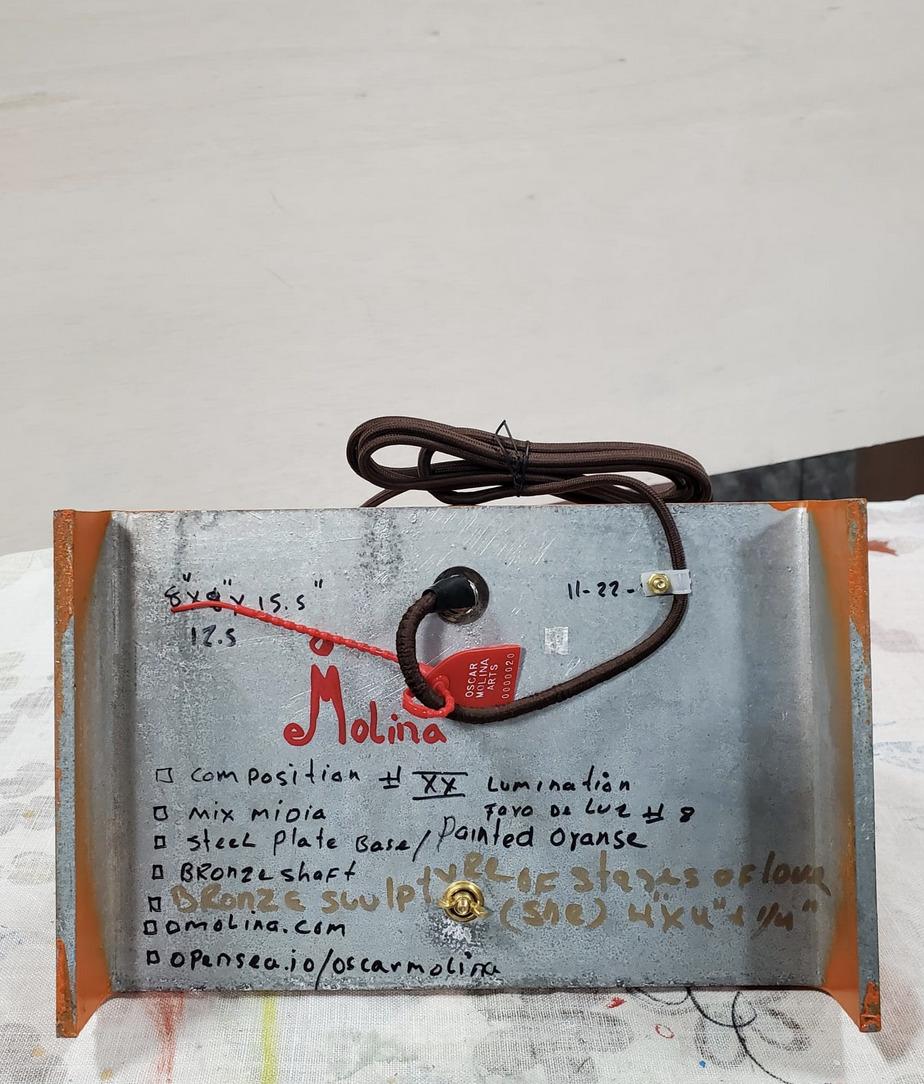 8" x 8" x 15.5"
12.5
11-22-
OSCAR
MOLINA
ARTS
0000020
Molina
□ composition # XX Lumination
Foyo De Luz # 8
□ mix midia
□ steel plate Base / Painted Oranse
□ BRonze shaft
□ BRonze sculptyre of stages of love
(she) 4" x 4" x 1/4"
□ omolina.com
□ opensea.io/oscarmolina